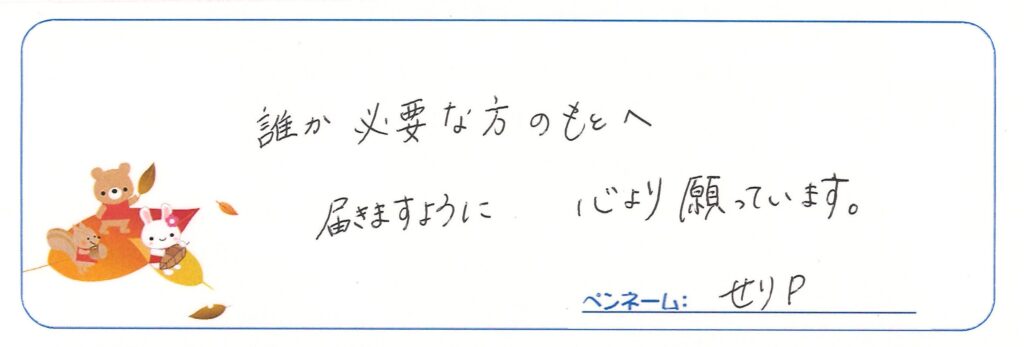 誰か必要な方のもとへ
届きますように 心より願っています。
ペンネーム: せりP